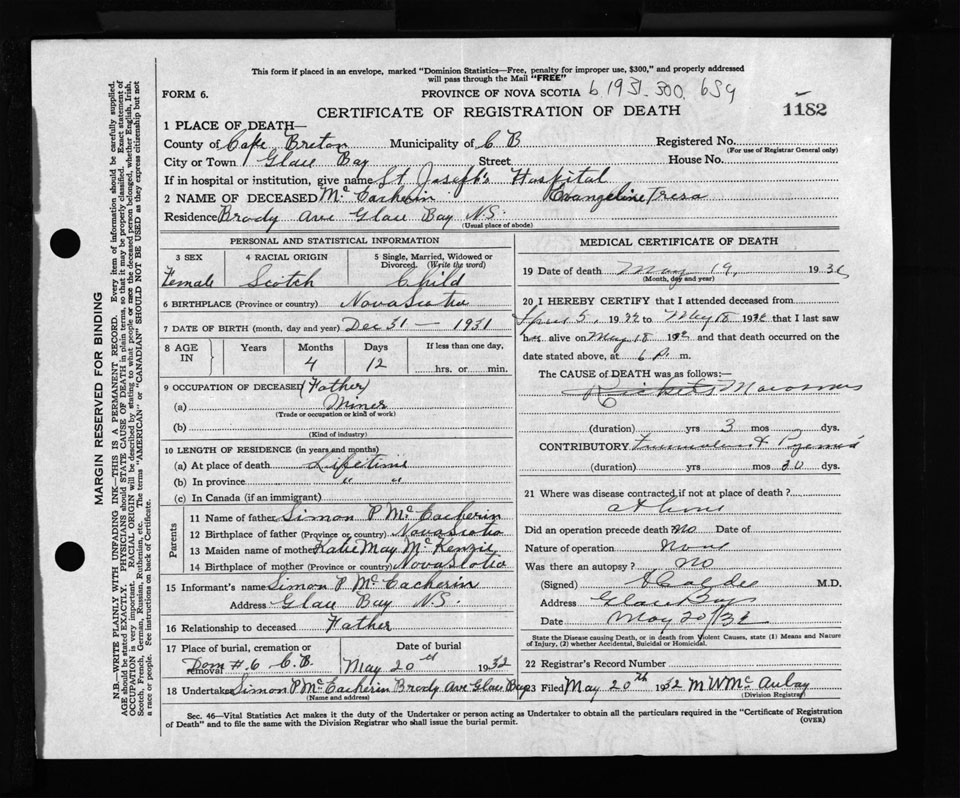 This form if placed in an envelope, marked "Dominion Statistics—Free, penalty for improper use, $300," and properly addressed
will pass through the Mail "FREE"
FORM 6.
PROVINCE OF NOVA SCOTIA 6 1931. 500. 659
CERTIFICATE OF REGISTRATION OF DEATH
1182
1 PLACE OF DEATH—
County of Cape Breton Municipality of C B Registered No.
(For use of Registrar General only)
City or Town Glace Bay Street House No.
If in hospital or institution, give name St. Joseph's Hospital
2 NAME OF DECEASED Mc Eacherin Evangeline Tresa
Residence Brody Ave Glace Bay N.S.
(Usual place of abode)
PERSONAL AND STATISTICAL INFORMATION
3 SEX 4 RACIAL ORIGIN 5 Single, Married, Widowed or
Divorced. (Write the word)
Female Scotch Child
6 BIRTHPLACE (Province or country) Nova Scotia
7 DATE OF BIRTH (month, day and year) Dec 31 — 1931
8 AGE IN Years Months Days If less than one day,
4 12 hrs. or min.
9 OCCUPATION OF DECEASED (Father)
(a) Miner
(Trade or occupation or kind of work)
(b)
(Kind of industry)
10 LENGTH OF RESIDENCE (in years and months)
(a) At place of death Lifetime
(b) In province " "
(c) In Canada (if an immigrant)
Parents
11 Name of father Simon P Mc Eacherin
12 Birthplace of father (Province or country) Nova Scotia
13 Maiden name of mother Katie May Mc Kenzie
14 Birthplace of mother (Province or country) Nova Scotia
15 Informant's name Simon P Mc Eacherin
Address Glace Bay N.S.
16 Relationship to deceased Father
17 Place of burial, cremation or removal Date of burial
Dom #.6 C.B. May 20th 1932
18 Undertaker Simon P Mc Eacherin Brody Ave Glace Bay
(Name and address)
MEDICAL CERTIFICATE OF DEATH
19 Date of death May 19, 193
(Month, day and year)
20 I HEREBY CERTIFY that I attended deceased from
April 5, 1932 to May 18 1932 that I last saw
h alive on May 18 193 and that death occurred on the
date stated above, at 6 P. m.
The CAUSE of DEATH was as follows:—
Rickets Marasmus
(duration) yrs 3 mos dys.
CONTRIBUTORY
(duration) yrs mos 30 dys.
21 Where was disease contracted if not at place of death?
At home
Did an operation precede death? No Date of
Nature of operation none
Was there an autopsy? NO
(Signed) M.D.
Address Glace Bay
Date May 20/32
State the Disease causing Death, or in death from Violent Causes, state (1) Means and Nature
of Injury, (2) whether Accidental, Suicidal or Homicidal.
22 Registrar's Record Number
23 Filed May 20th 1932 M W Mc Aulay
(Division Registrar)
Sec. 46—Vital Statistics Act makes it the duty of the Undertaker or person acting as Undertaker to obtain all the particulars required in the "Certificate of Registration
of Death" and to file the same with the Division Registrar who shall issue the burial permit.
(OVER)
MARGIN RESERVED FOR BINDING
N.B.—WRITE PLAINLY WITH UNFADING INK—THIS IS A PERMANENT RECORD. Every item of information should be carefully supplied.
AGE should be stated EXACTLY. PHYSICIANS should STATE CAUSE OF DEATH in plain terms, so that it may be properly classified. Exact statement of
OCCUPATION is very important. RACIAL ORIGIN will be described by stating to what people or race the deceased person belonged, whether English, Irish,
Scotch, French, German, Russian, Ruthenian, etc. The terms "AMERICAN" or "CANADIAN" SHOULD NOT BE USED as they express citizenship but not
a race or people. See instructions on back of Certificate.